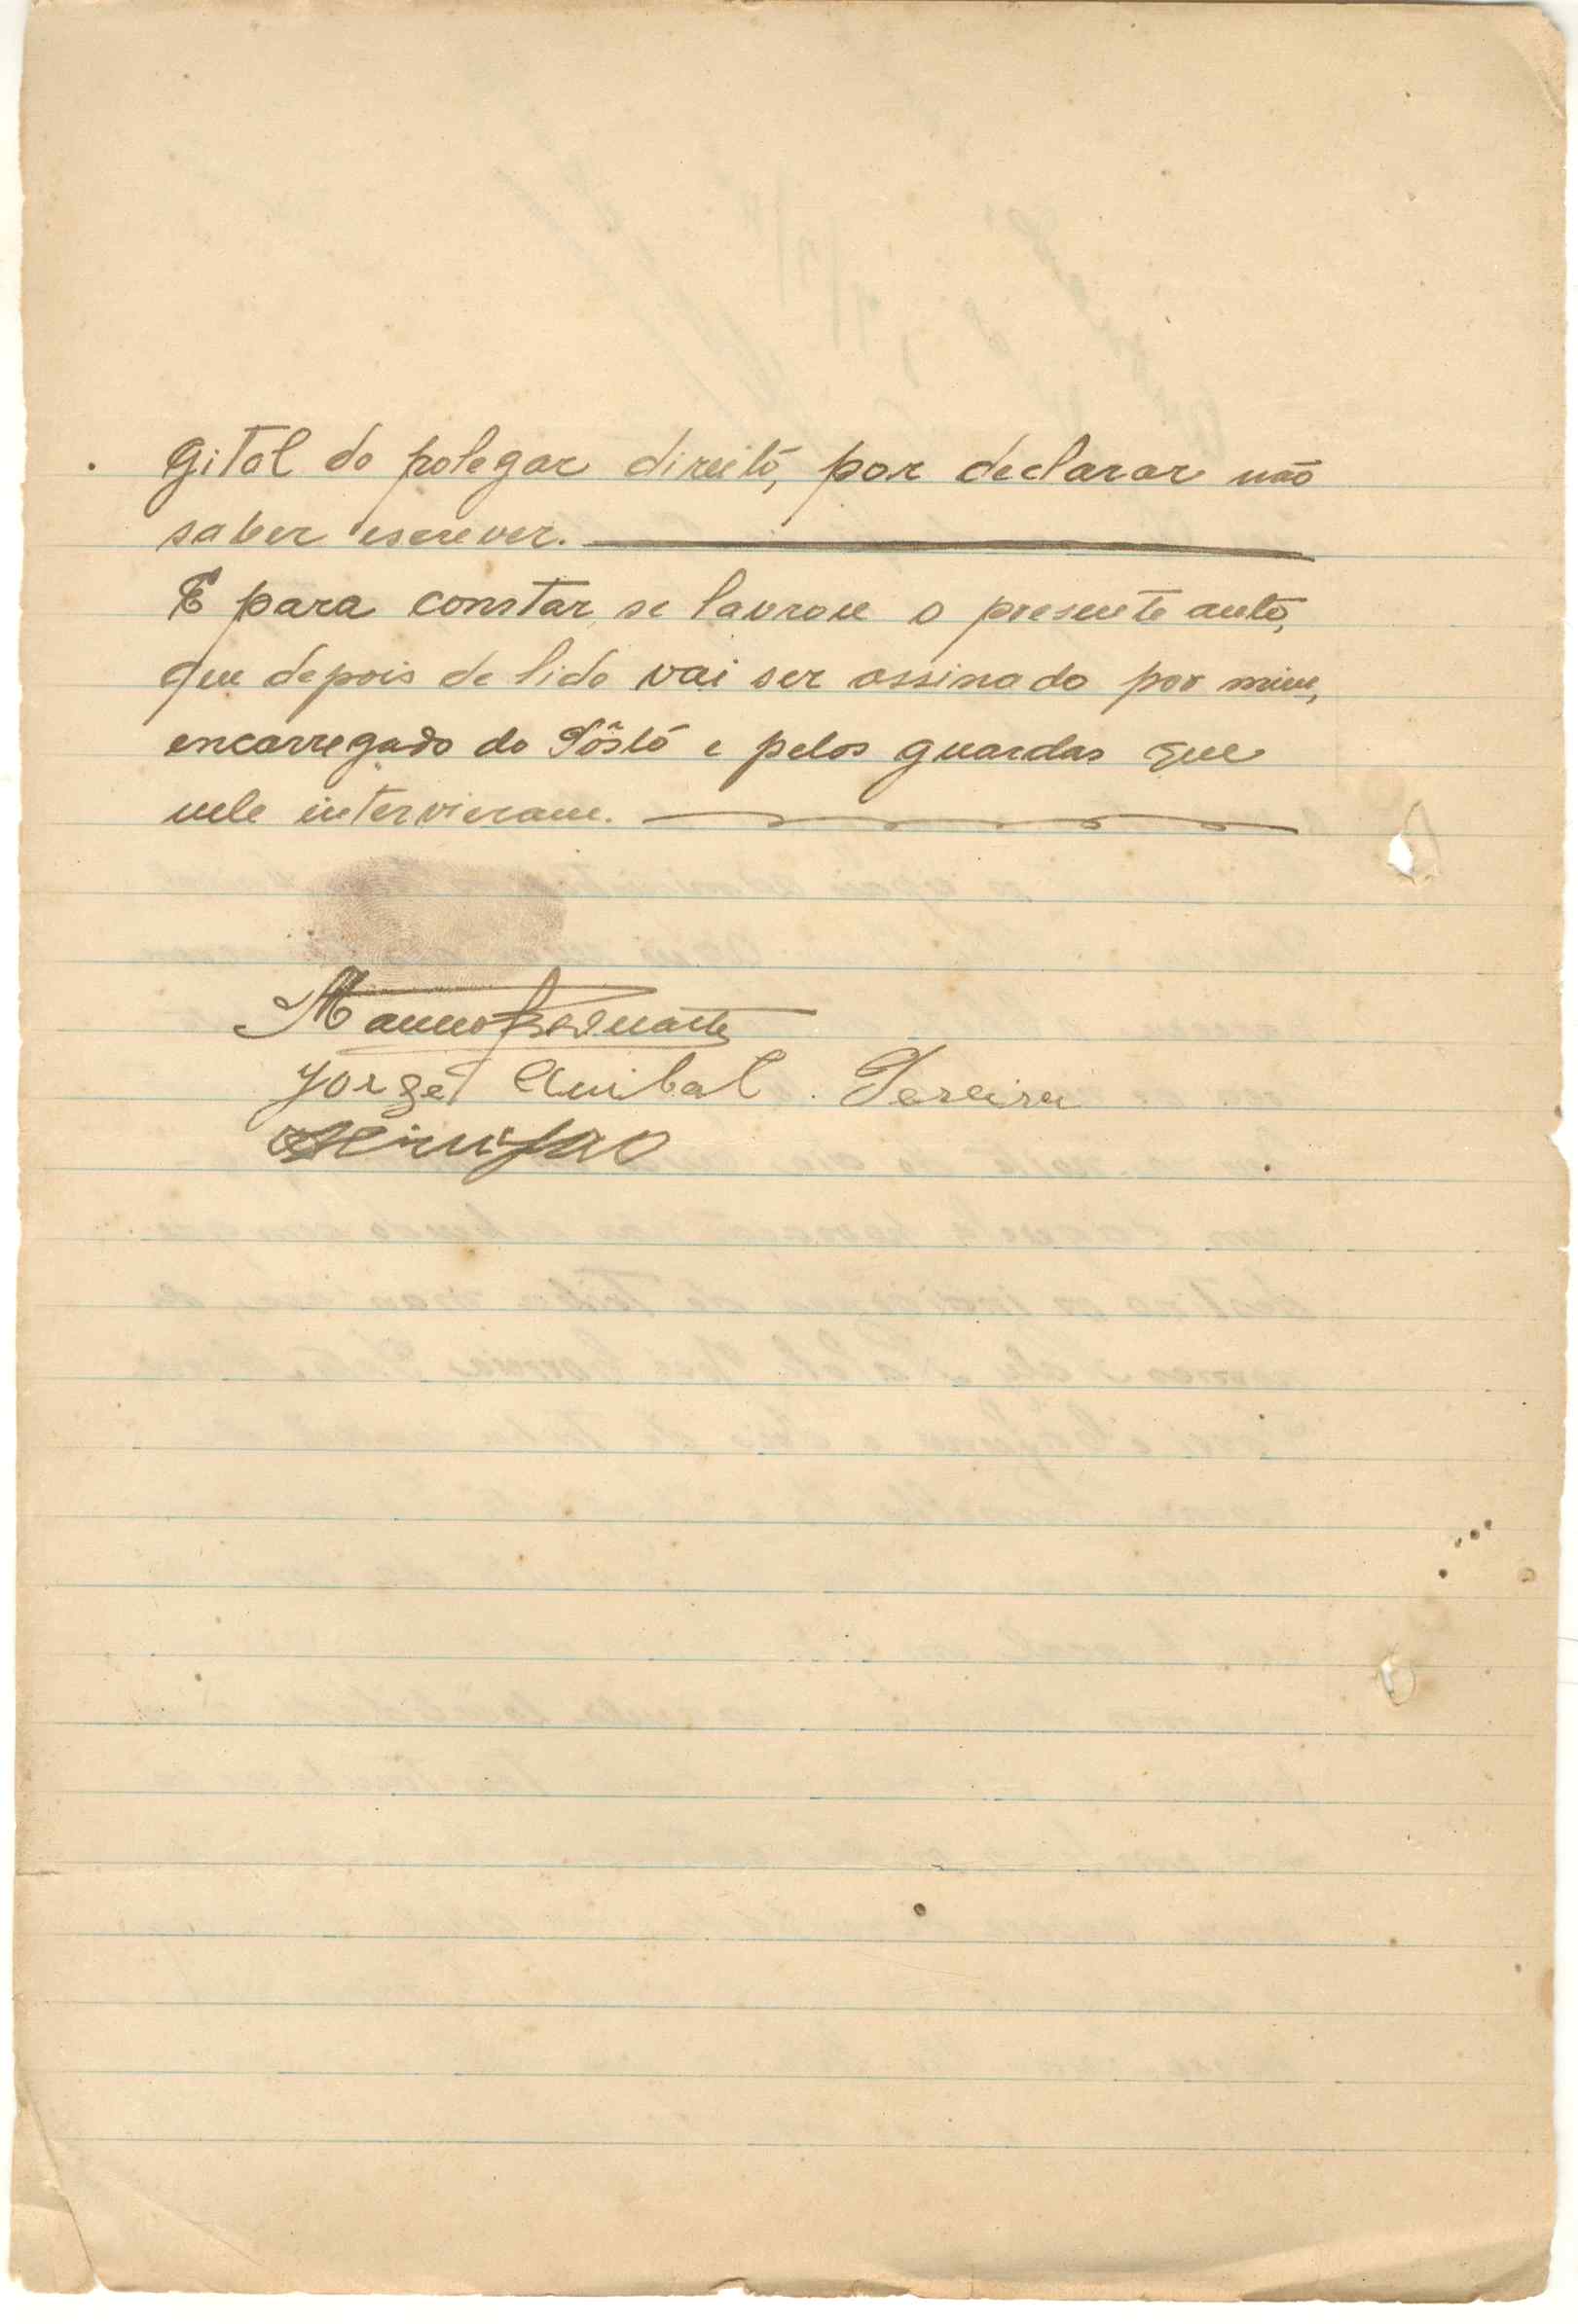 gital do polegar direito, por declarar não
saber escrever.
E para constar se lavrou o presente auto,
que depois de lido vai ser assinado por mim,
encarregado do Pôsto e pelos guardas que
nele intervieram.
Jorge Anibal Pereira